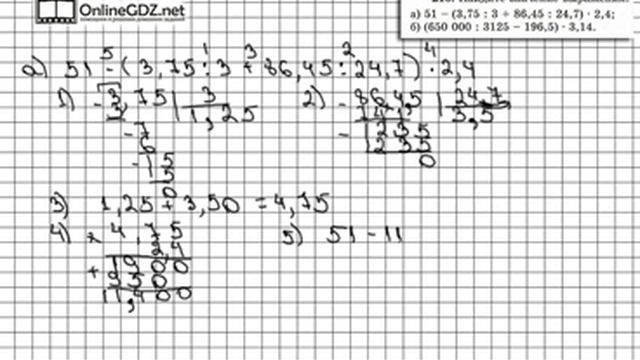 OnlineGDZ.net
а) 51 – (3,75 : 3 + 86,45 : 24,7) · 2,4;
б) (650 000 : 3125 – 196,5) · 3,14.
5 1 3 2 4
а) 51 - (3,75 : 3 + 86,45 : 24,7) · 2,4
1) - 3,75 | 3 2) - 86,4,5 | 24,7
3 1,25 741 3,5
- 7 - 1235
6 1235
- 15 0
15
0
3) 1,25 + 3,50 = 4,75
4) × 4,75 5) 51 - 11
2,4
+ 1900
950
11,400